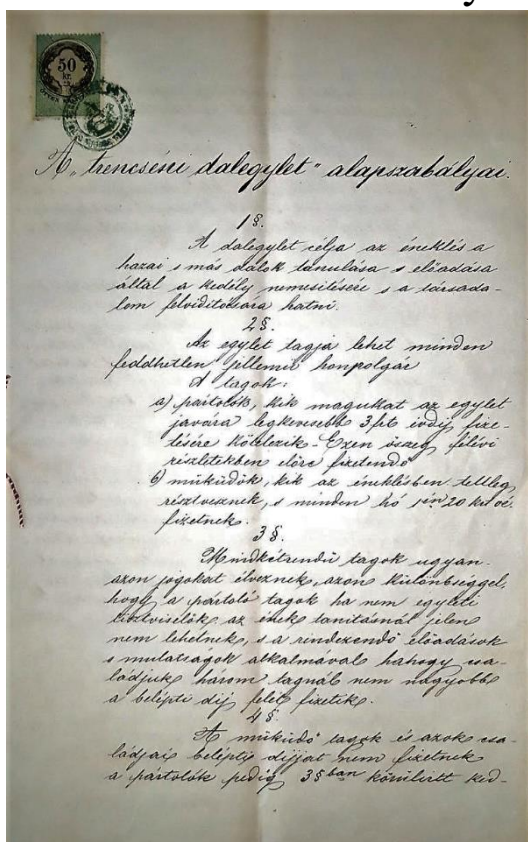 50
kr.
A „trencséni dalegylet" alapszabályai.
1 §.
A dalegylet célja az éneklés a
hazai s más dalok tanulása s előadása
által a kedély nemesitésére s a társada-
lom felviditására hatni.
2 §.
Az egylet tagja lehet minden
feddhetlen jellemü honpolgár
A tagok:
a) pártolók, kik magukat az egylet
javára legkevesebb 3 frt évdij fize-
tésére kötelezik. Ezen öszeg félévi
részletekben előre fizetendő
b) müküdők, kik az éneklésben tettleg
résztvesznek, s minden hó 20 kr oé.
fizetnek.
3 §.
Mindkétrendü tagok ugyan-
azon jogokat élveznek, azon különbséggel,
hogy a pártoló tagok ha nem egyleti
tisztviselők az ének tanitásnál jelen
nem lehetnek, s a rendezendő előadások
s mulatságok alkalmával hahogy csa-
ládjuk három tagnál nem nagyobb
a belépti dij felét fizetik.
4 §.
A müküdő tagok és azok csa-
ládjai belépti dijjat nem fizetnek
a pártolók pedig 3 §ban körülirt ked-